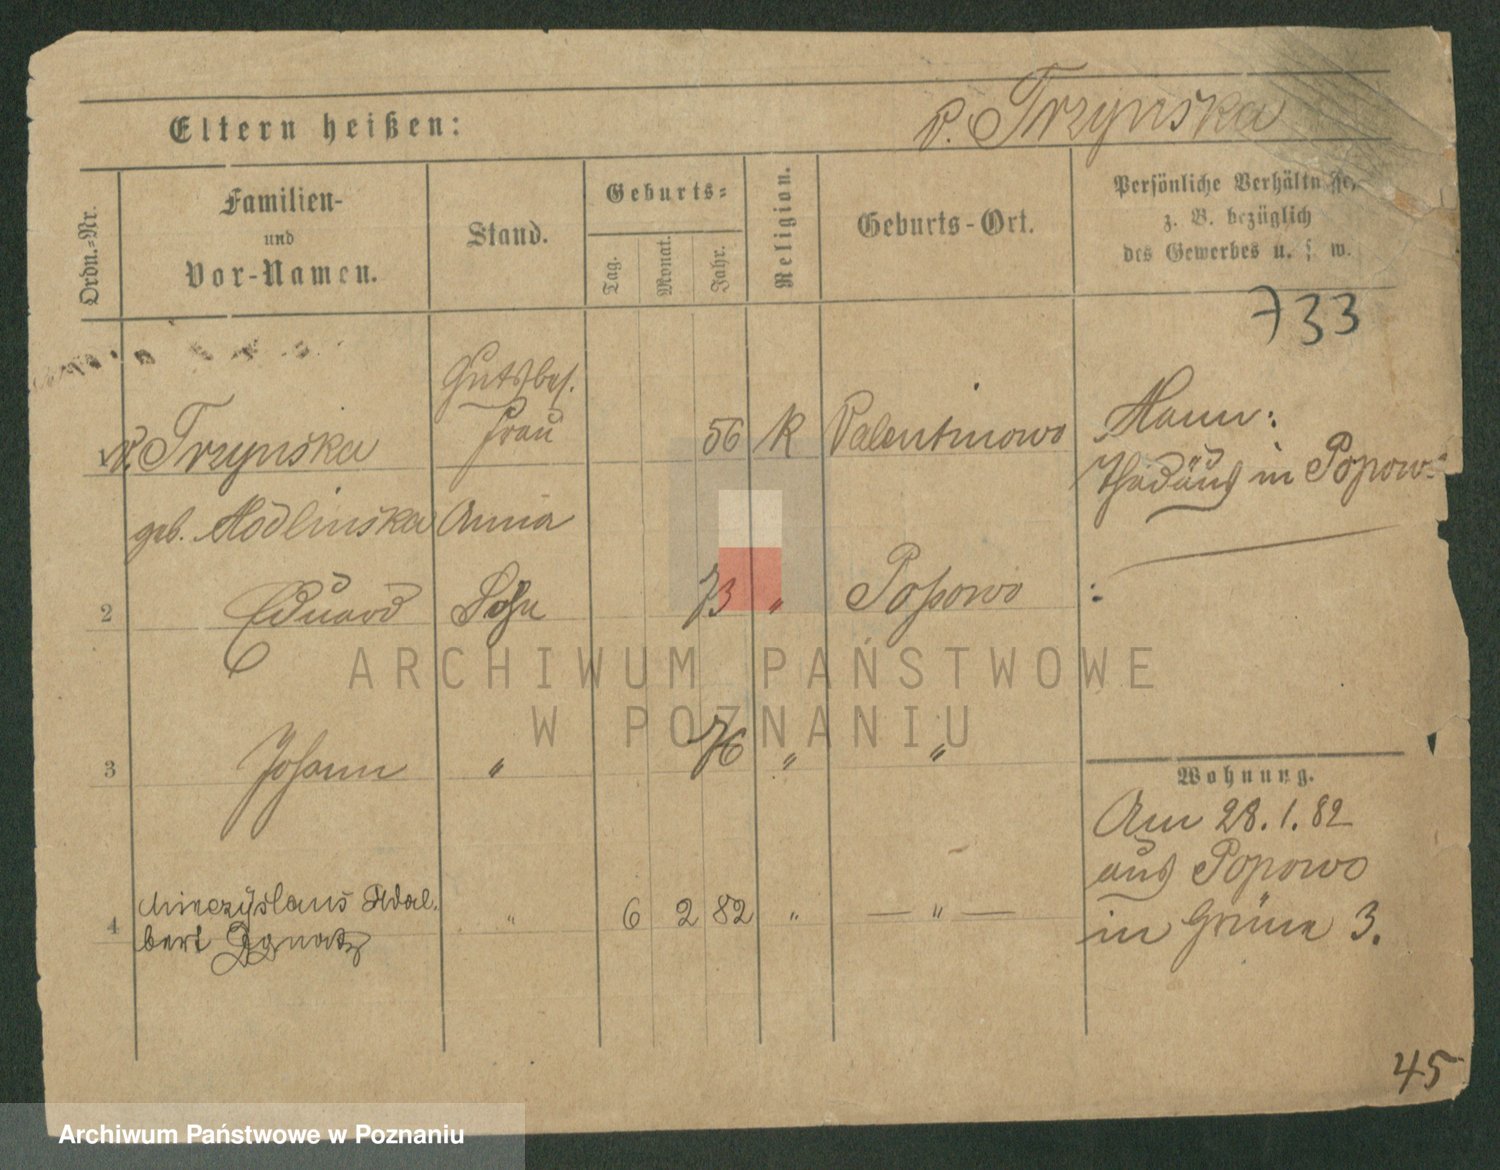 v. Trzynska
Eltern heißen:
Ordn.-Nr.
Familien-
und
Vor-Namen.
Stand.
Geburts-
Tag.
Monat.
Jahr.
Religion.
Geburts-Ort.
Persönliche Verhältnisse,
z. B. bezüglich
des Gewerbes u. s. w.
733
Gutsbes.
1 v. Trzynska Frau 56 K Valentinowo
Mann:
Thadäus in Popowo
geb. Modlinska Anna
2 Eduard Sohn 73 " Popowo
3 Johann " 76 " "
Wohnung.
Am 28.1.82
aus Popowo
in Grüne 3.
4 Mieczyslaus Adal-
bert Ignatz " 6 2 82 " — " —
45
ARCHIWUM PAŃSTWOWE
W POZNANIU
Archiwum Państwowe w Poznaniu